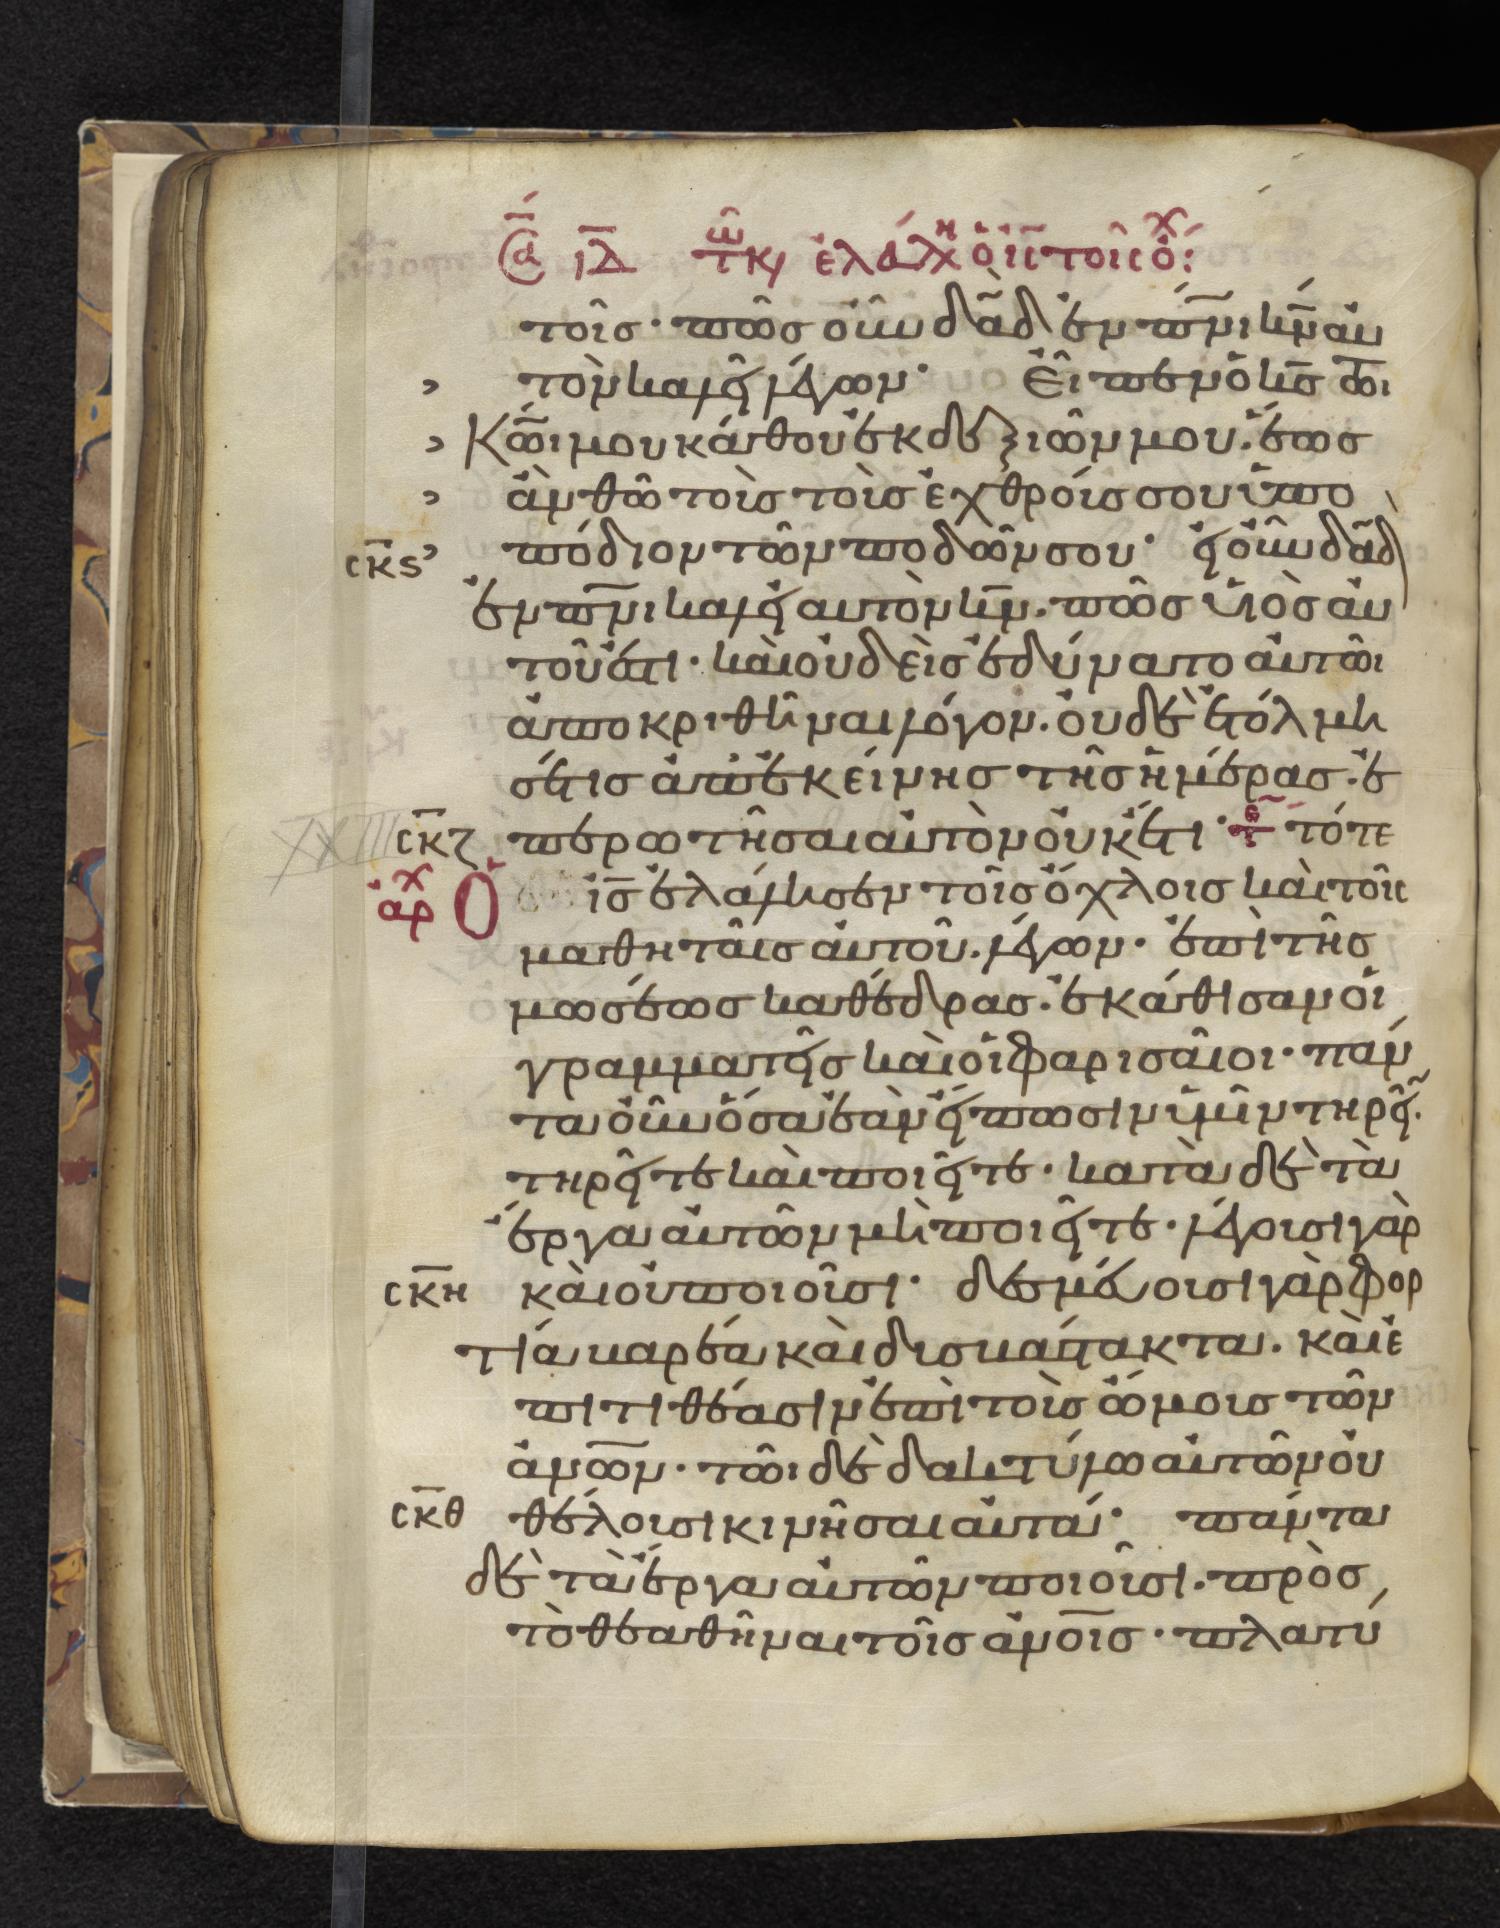 τοῖσ· πῶσ οὖν δᾱδ ἐν π̅ν̅ι κ̅ν̅ αὐ
τὸν καλεῖ λέγων· εἶπεν ὁ κ̅σ̅ τῶι
κ̅ω̅ι μου κάθου ἐκ δεξιῶν μου· ἕωσ
ἂν θῶ τοὺσ τοὺσ ἐχθρούσ σου ὑπο
ϲκϛ πόδιον τῶν ποδῶν σου· εἰ οὖν δᾱδ
ἐν π̅ν̅ι καλεῖ αὐτὸν κ̅ν̅· πῶσ υἱὸσ αὐ
τοῦ ἐστι· καὶ οὐδεὶσ ἐδύνατο αὐτῶι
ἀποκριθῆναι λόγον· οὐδὲ ἐτόλμη
σέ τισ ἀπ' ἐκείνησ τῆσ ἡμέρασ· ἐ
ϲκζ περωτῆσαι αὐτὸν οὐκέτι· τότε
ἀρχ Ὁ ι̅σ̅ ἐλάλησεν τοῖσ ὄχλοισ καὶ τοῖϲ
μαθηταῖσ αὐτοῦ· λέγων· ἐπὶ τῆσ
μωσέωσ καθέδρασ· ἐκάθισαν οἱ
γραμματεῖσ καὶ οἱ φαρισαῖοι· πάν
τα οὖν ὅσα ἐὰν εἴπωσιν ὑμῖν τηρεῖ·
τηρεῖτε καὶ ποιεῖτε· κατὰ δὲ τὰ
ἔργα αὐτῶν μὴ ποιεῖτε· λέγουσι γὰρ
ϲκη καὶ οὐ ποιοῦσι· δεσμεύουσι γὰρ φορ
τία βαρέα καὶ δυσβάστακτα· καὶ ἐ
πιτιθέασιν ἐπὶ τοὺσ ὤμουσ τῶν
ἀν̅ω̅ν· τῶι δὲ δακτύλω αὐτῶν οὐ
ϲκθ θέλουσι κινῆσαι αὐτά· πάντα
δὲ τὰ ἔργα αὐτῶν ποιοῦσι· πρὸσ
τὸ θεαθῆναι τοῖσ ἀν̅ο̅ι̅σ· πλατύ